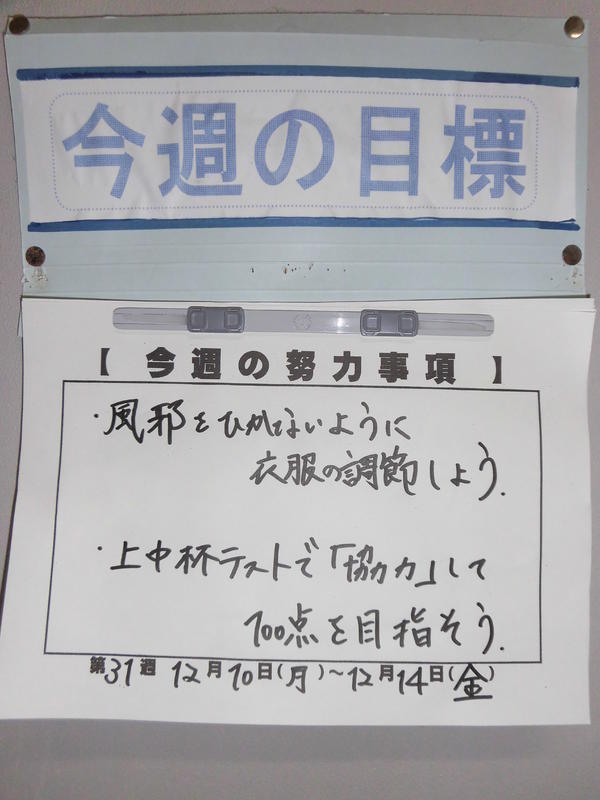 今週の目標
【今週の努力事項】
・風邪をひかないように
衣服の調節しよう.
・上中杯テストで「協力」して
100点を目指そう.
第31週 12月10日(月)~12月14日(金)